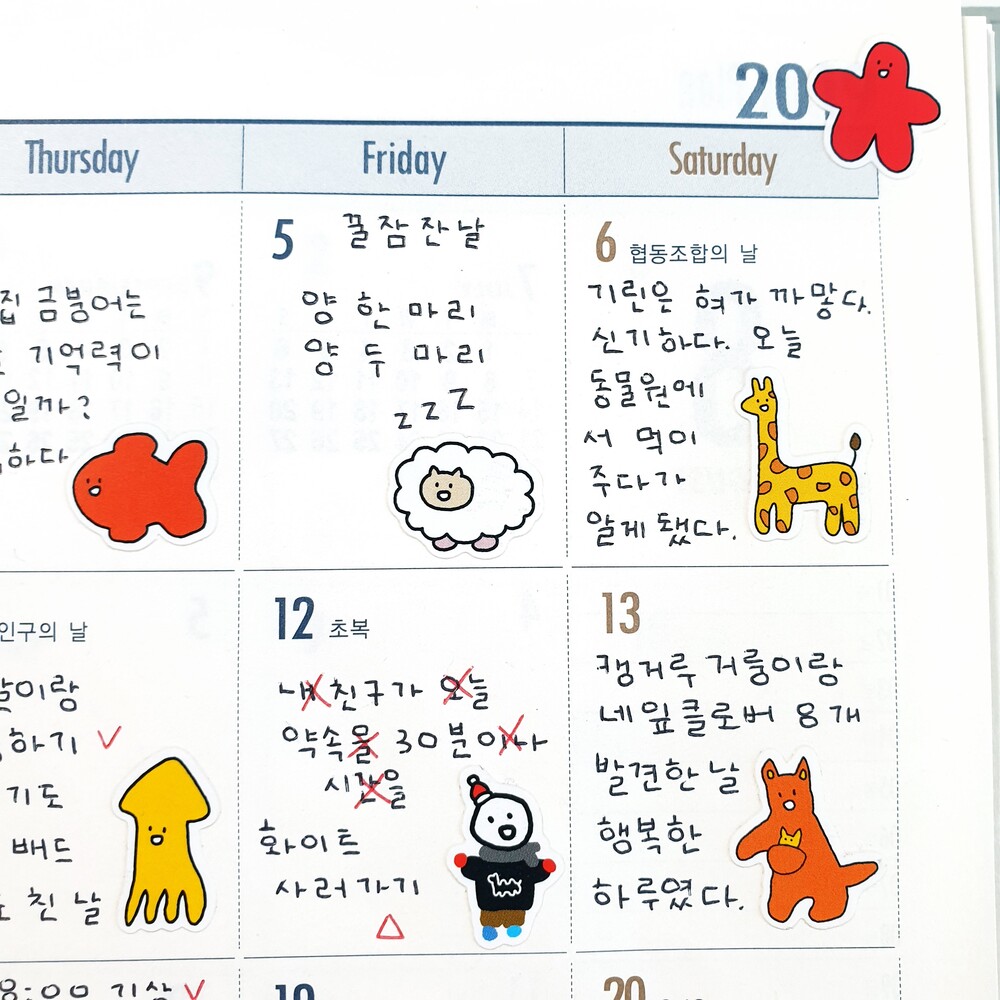 20
Thursday
Friday
Saturday
집 금붕어는
기억력이
일까?
하다
5
꿀잠 잔 날
양 한 마리
양 두 마리
z z z
6 협동조합의 날
기린은 혀가 까맣다.
신기하다. 오늘
동물원에
서 먹이
주다가
알게 됐다.
인구의 날
이랑
하기
기도
배드
친 날
12 초복
내 친구가 오늘
약속을 30분이나
시간을
화이트
사러가기
13
캥거루 거룽이랑
네잎클로버 8개
발견한 날
행복한
하루였다.
8:00 기상
19
20